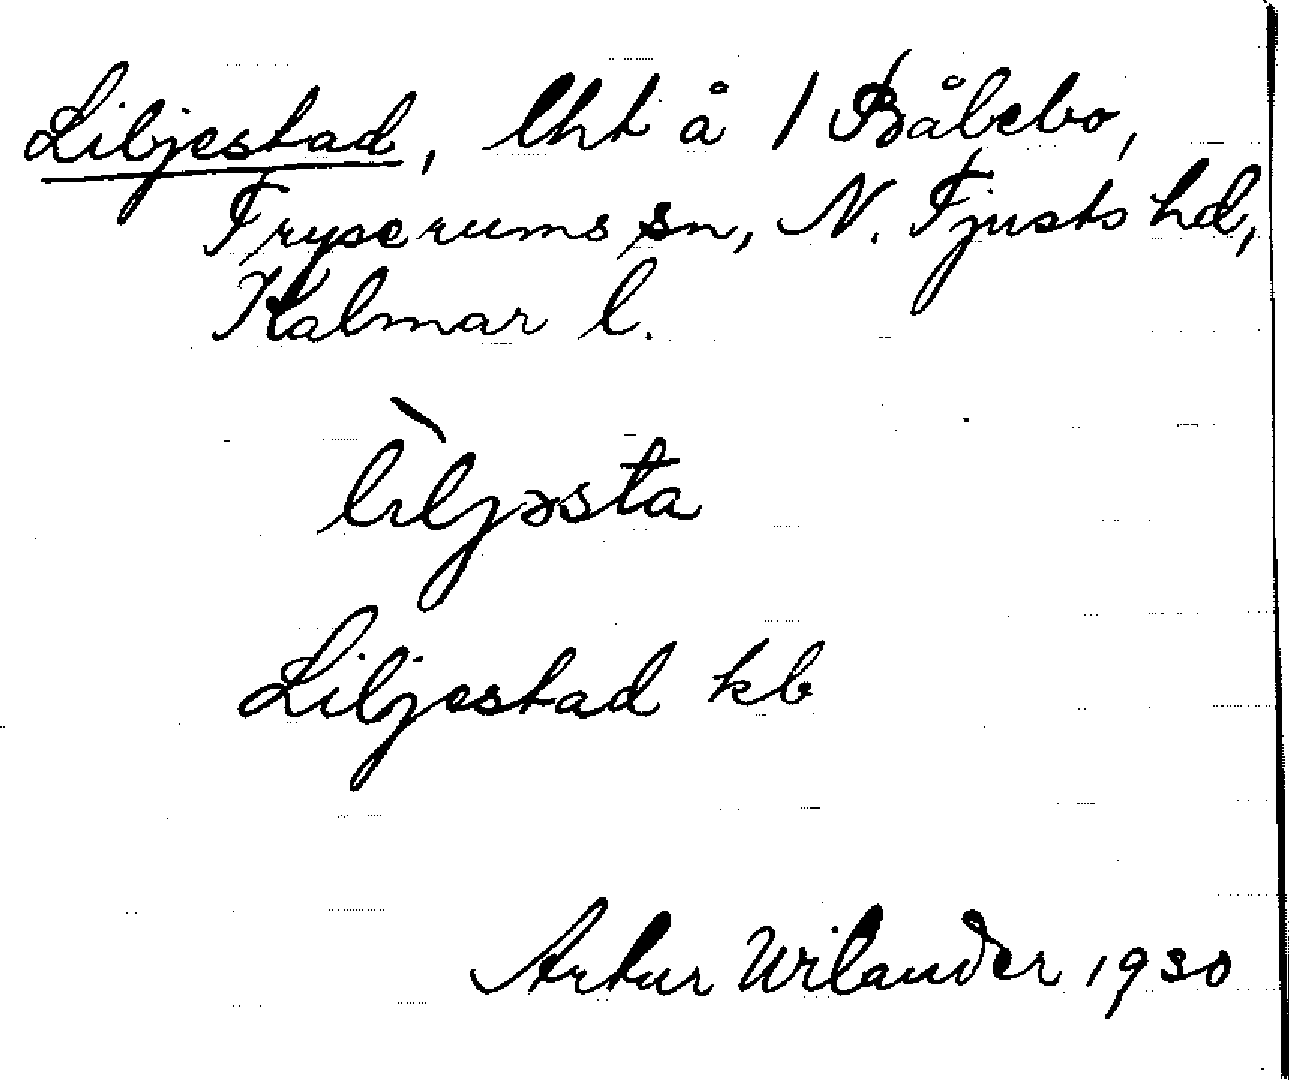 Liljestad, lht å 1 Bålebo,
Tryserums sn, N. Tjusts hd,
Kalmar l.
lìljəsta
Liljestad kb
Artur Wilander 1930